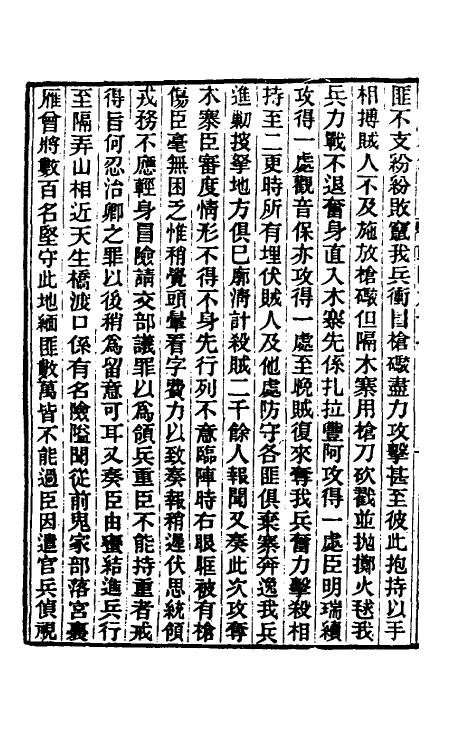 匪不支紛紛敗竄我兵衝冒槍礮盡力攻擊甚至彼此抱持以手
相搏賊人不及施放槍礮但隔木寨用槍刀砍戳並拋擲火毬我
兵力戰不退奮身直入木寨先係扎拉豐阿攻得一處臣明瑞續
攻得一處觀音保亦攻得一處至晚賊復來奪我兵奮力擊殺相
持至二更時所有埋伏賊人及他處防守各匪俱棄寨奔逸我兵
進勦接拏地方俱已廓淸計殺賊二千餘人報聞又奏此次攻奪
木寨臣審度情形不得不身先行列不意臨陣時右眼眶被有槍
傷臣毫無困乏惟稍覺頭暈看字費力以致奏報稍遲伏思統領
戎務不應輕身冒險請交部議罪以爲領兵重臣不能持重者戒
得旨何忍治卿之罪以後稍爲留意可耳又奏臣由蠻結進兵行
至隔弄山相近天生橋渡口係有名險隘聞從前鬼家部落宮裏
雁曾將數百名堅守此地緬匪數萬皆不能過臣因遣官兵偵視